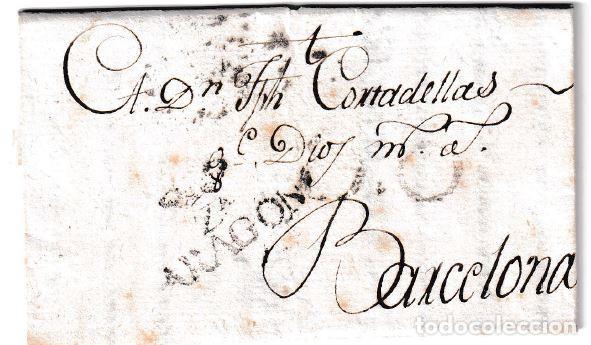 †
A. Dn Jph Cortadellas
ge. Dios m. a.
ZA
ARAGON
Barcelona
todocoleccion.net